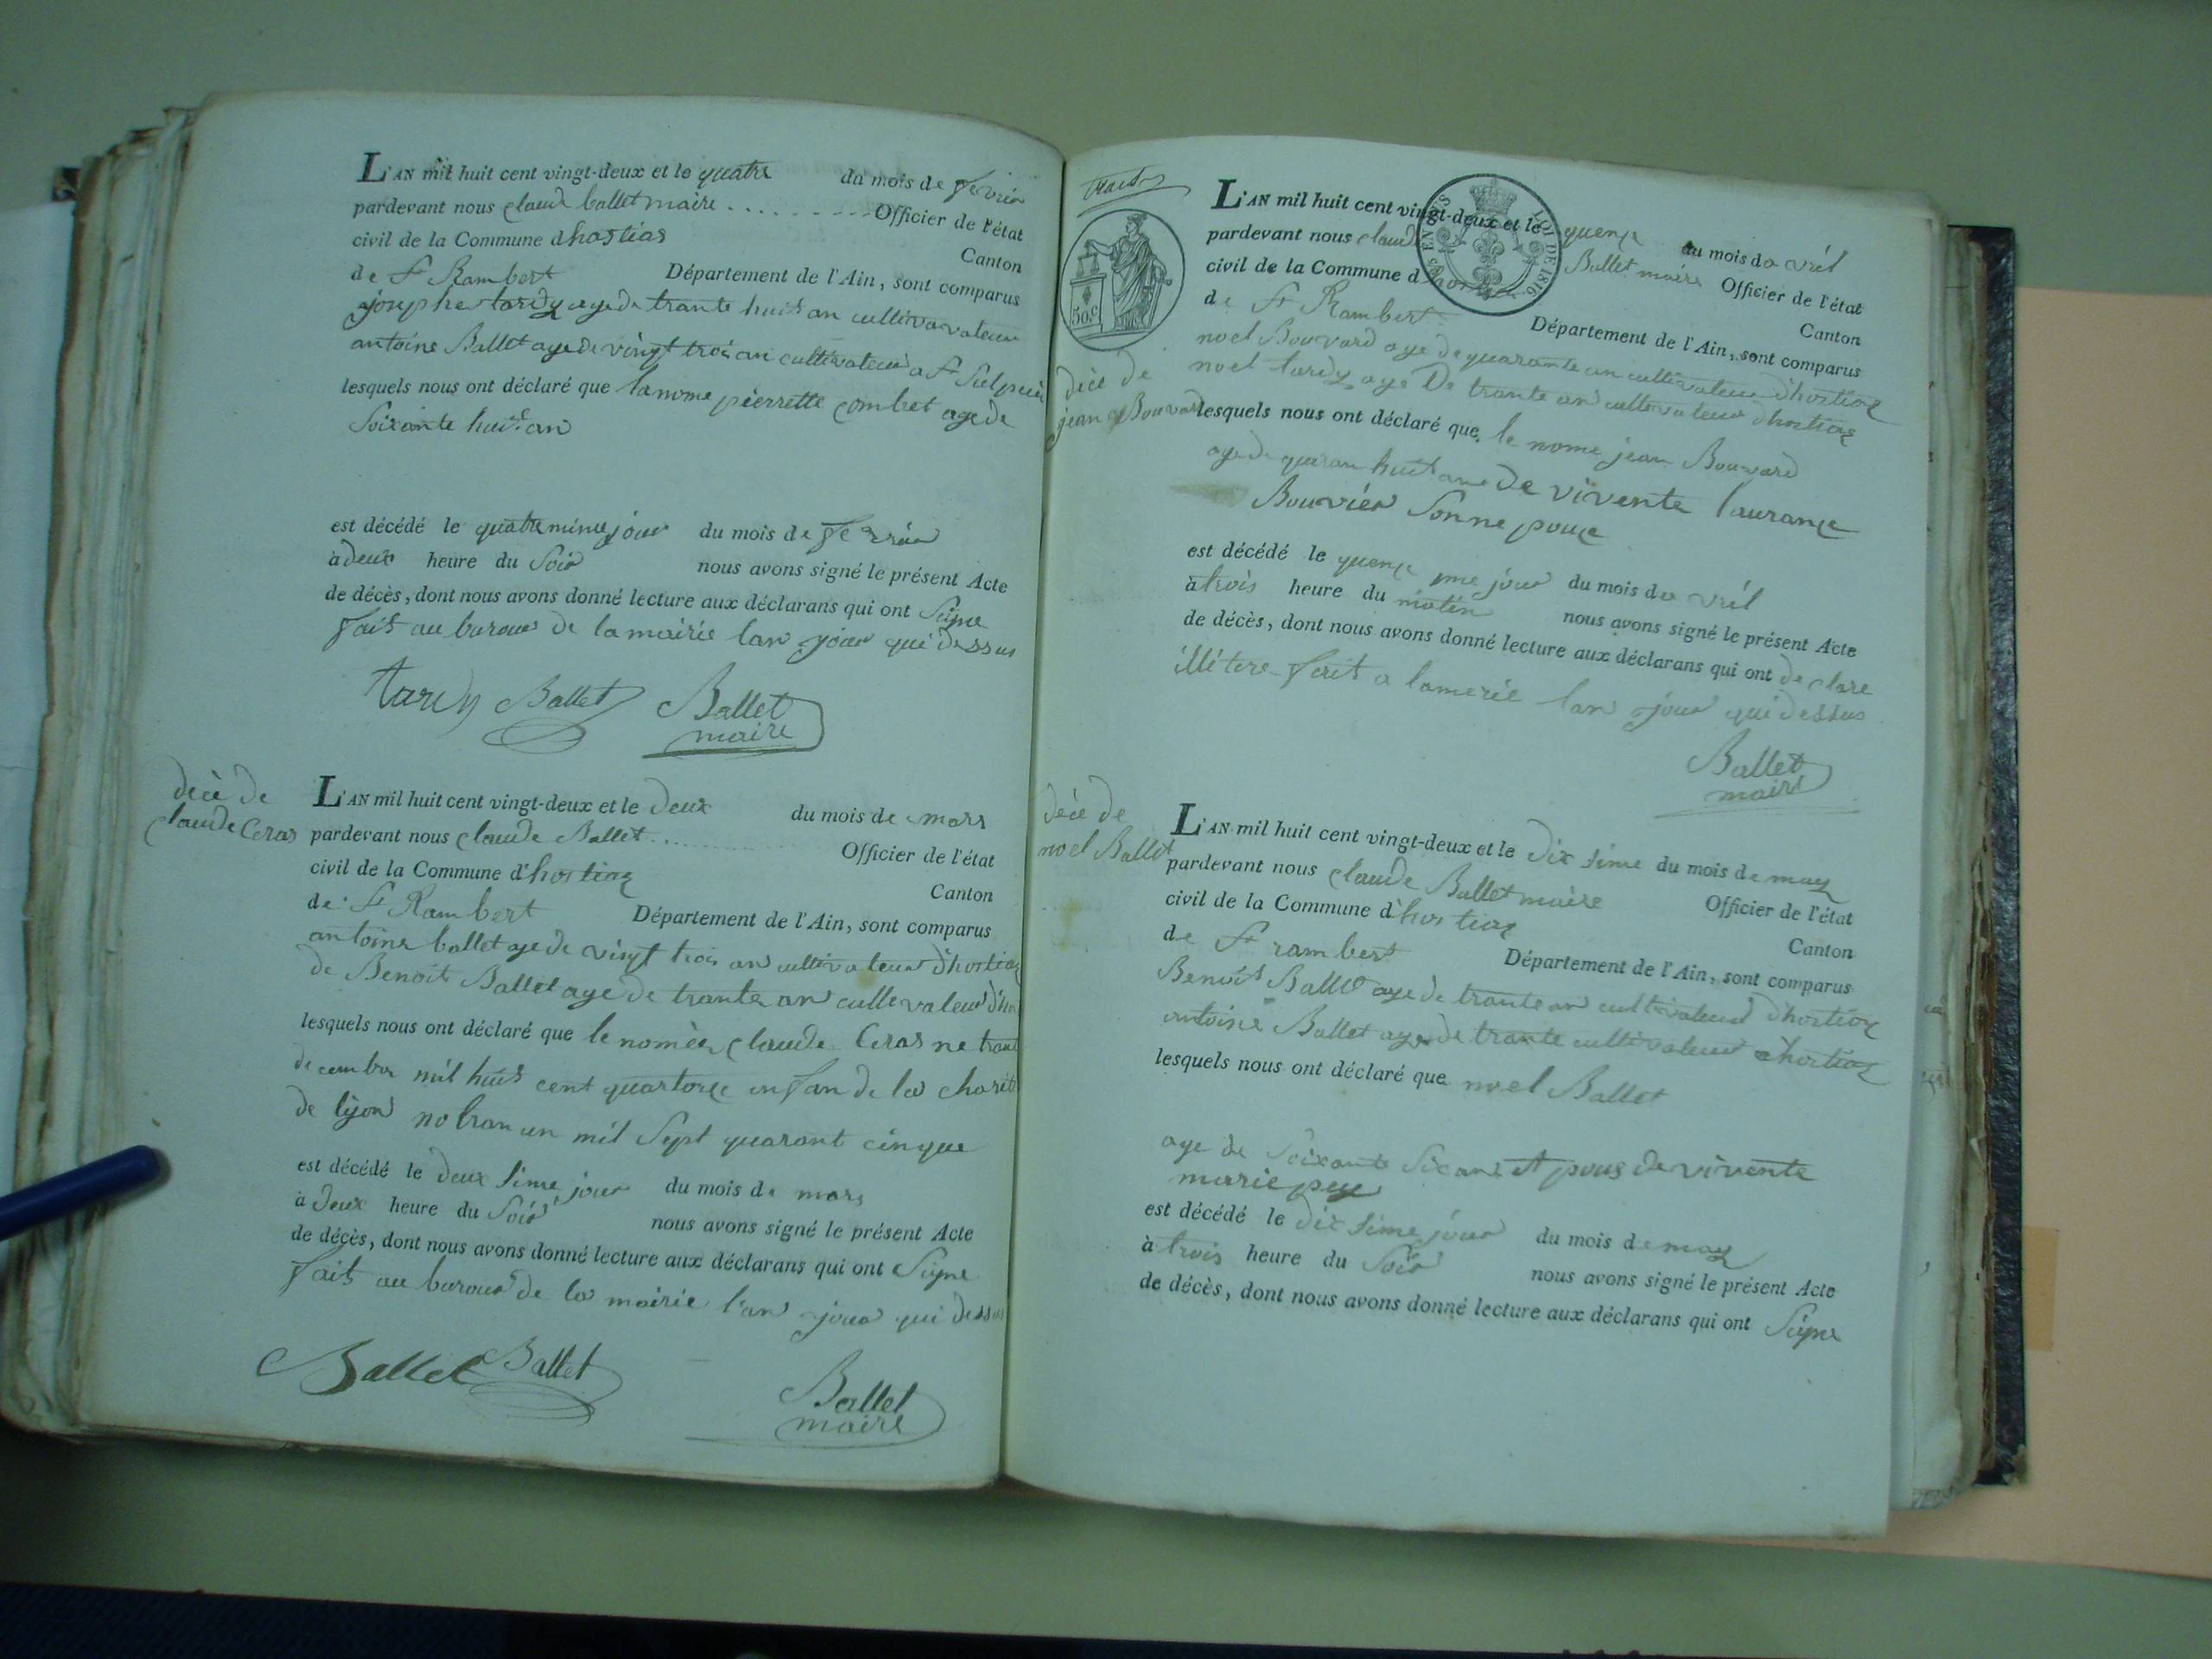 L'AN mil huit cent vingt-deux et le quatre du mois de fevrier
pardevant nous claude ballet maire . . . . . . . . . Officier de l'état
civil de la Commune dhostias
Canton
de St Rambert Département de l'Ain, sont comparus
josephe tardy age de trante huit an cultivavateur
antoine Ballet age de vingt trois an cultivateur a St Sulpice
lesquels nous ont déclaré que la nome pierrette combet age de
soixante huit an
est décédé le quatrimime jour du mois de fevrier
à deux heure du soir nous avons signé le présent Acte
de décès, dont nous avons donné lecture aux déclarans qui ont Signe
fait au buraux de la mairie lan jour qui dessus
tardy Ballet Ballet
maire
déce de
claude Ceras
L'AN mil huit cent vingt-deux et le deux du mois de mars
pardevant nous claude Ballet Officier de l'état
civil de la Commune d'hostiaz
Canton
de St Rambert Département de l'Ain, sont comparus
antoine ballet age de vingt trois an cultivateur d'hostiaz
de Benoit Ballet age de trante an cultevateur d'hos
lesquels nous ont déclaré que le nomée claude Ceras ne trant
decembre mil huit cent quartorze enfan de la charité
de lyon no tran un mil sept quarant cinque
est décédé le deux sime jour du mois de mars
à deux heure du soir nous avons signé le présent Acte
de décès, dont nous avons donné lecture aux déclarans qui ont Signe
fait au buraux de la mairie l'an jour qui dessus
Ballet Ballet
Ballet
maire
50.c
EN SUS LOI DE 1816.
déce de
jean Bouvard
L'AN mil huit cent vingt-deux et le quenze du mois da vril
pardevant nous claude Ballet maire Officier de l'état
civil de la Commune d'hostiaz
Canton
de St Rambert Département de l'Ain, sont comparus
noel Bouvard age de quarante an cultivateur d'hostiaz
noel tardy age De trante an cultevateur d'hostiaz
lesquels nous ont déclaré que le nome jean Bouvard
age de quaran huit ans De vivente laurance
Bouvier Sonne pouce
est décédé le quenze ime jour du mois da vril
à trois heure du matin nous avons signé le présent Acte
de décès, dont nous avons donné lecture aux déclarans qui ont declare
illitere fait a lamerie lan jour qui dessus
Ballet
maire
déce de
noel Ballet
L'AN mil huit cent vingt-deux et le dix sime du mois de may
pardevant nous claude Ballet maire Officier de l'état
civil de la Commune d'hostiaz
Canton
de St rambert Département de l'Ain, sont comparus
Benoit Ballet age de trante an cultivateur d'hostiaz
antoine Ballet age de trante cultivateur d'hostiaz
lesquels nous ont déclaré que noel Ballet
age de soixante six ans et pous de vivente
marie peye
est décédé le dix sime jour du mois de may
à trois heure du soir nous avons signé le présent Acte
de décès, dont nous avons donné lecture aux déclarans qui ont Signe